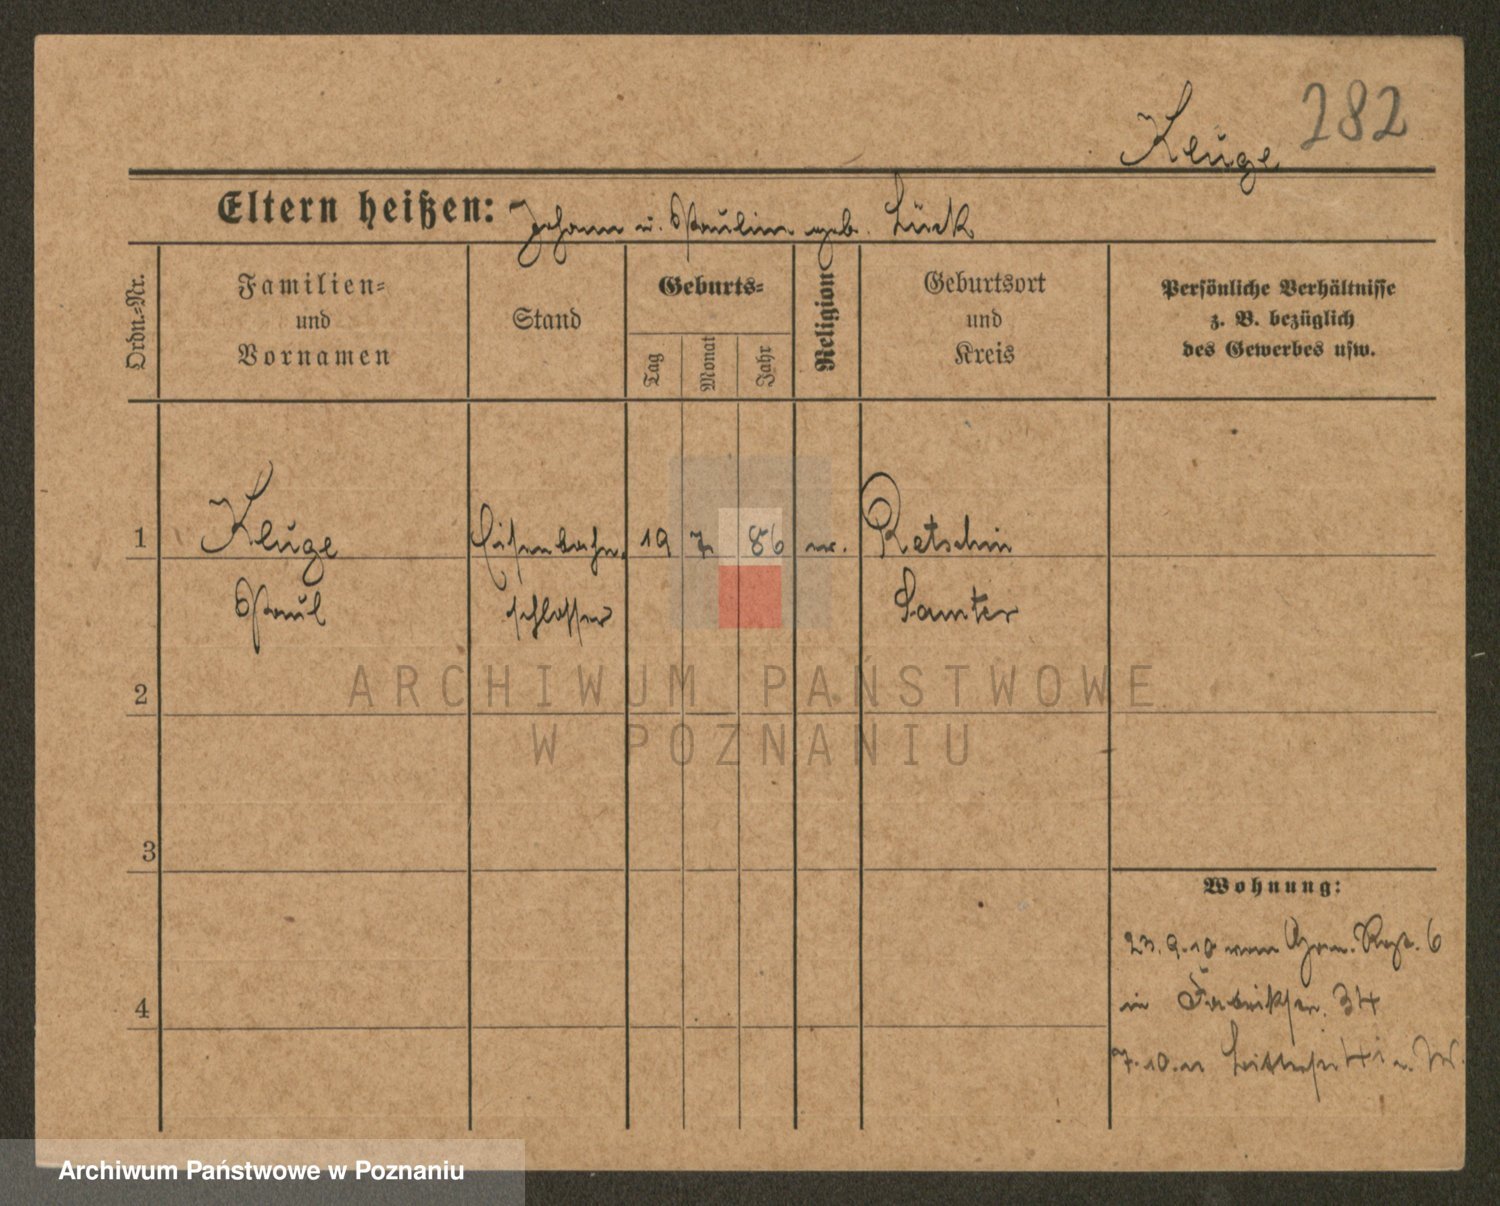 282
Kluge
Eltern heißen: Johann u. Paulin geb. Lück
Ordn.-Nr.
Familien-
und
Vornamen
Stand
Geburts-
Tag
Monat
Jahr
Religion
Geburtsort
und
Kreis
Persönliche Verhältnisse
z. B. bezüglich
des Gewerbes usw.
1 Kluge Eisenbahn. 19 7. 86 Retschin
Paul schlosser Samter
2
3
4
Wohnung:
23.9.10 vom Gren. Regt. 6
in Fabrikstr. 34
7.10.11
ARCHIWUM PAŃSTWOWE
W POZNANIU
Archiwum Państwowe w Poznaniu